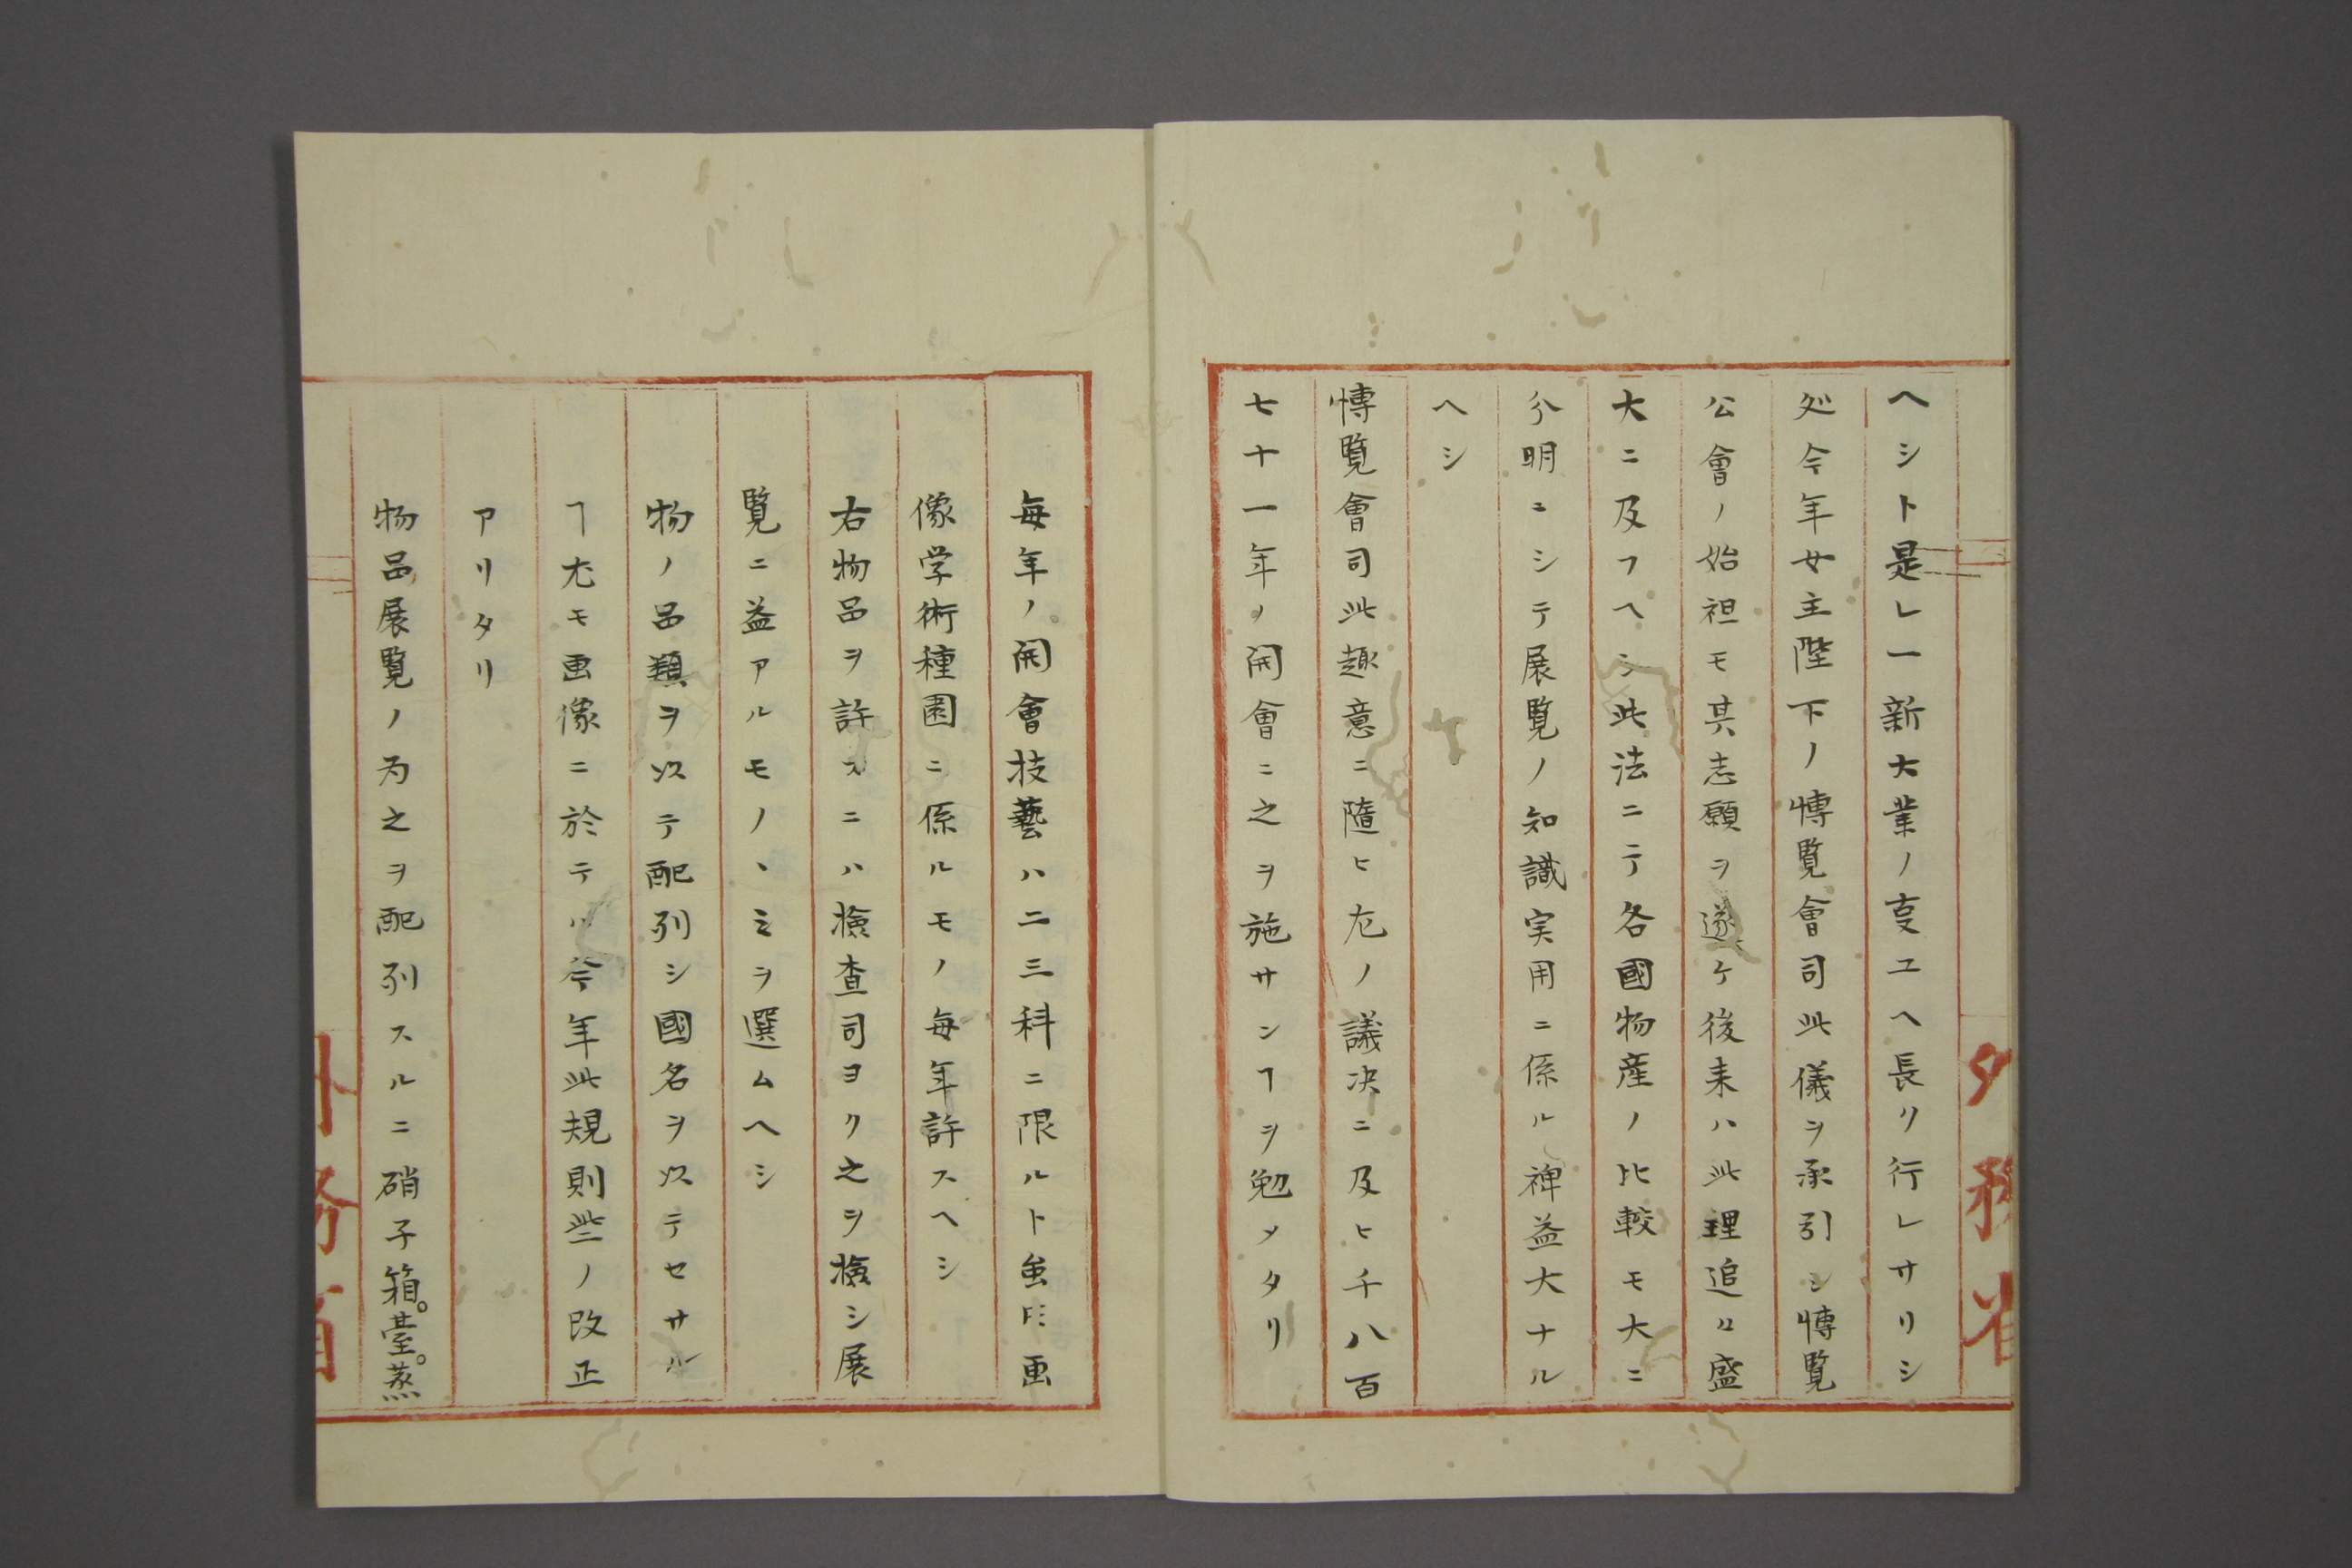 ヘシト是レ一新大業ノ事ユヘ長ク行レサリシ
処今年女主陛下ノ博覧會司此儀ヲ承引シ博覧
公會ノ始祖モ其志願ヲ遂ケ後来ハ此理追々盛
大ニ及フヘシ此法ニテ各國物産ノ比較モ大ニ
分明ニシテ展覧ノ知識実用ニ係ル裨益大ナル
ヘシ
博覧會司此趣意ニ隨ヒ左ノ議决ニ及ヒ千八百
七十一年ノ開會ニ之ヲ施サンヿヲ勉メタリ
毎年ノ開會技藝ハ二三科ニ限ルト虽𪜈画
像学術種園ニ係ルモノ毎年許スヘシ
右物品ヲ許スニハ撿査司ヨク之ヲ撿シ展
覧ニ益アルモノヽミヲ選ムヘシ
物ノ品類ヲ以テ配列シ國名ヲ以テセサル
ヿ尤モ画像ニ於テハ今年此規則些ノ改正
アリタリ
物品展覧ノ為之ヲ配列スルニ硝子箱。臺。蒸
外務省
外務省